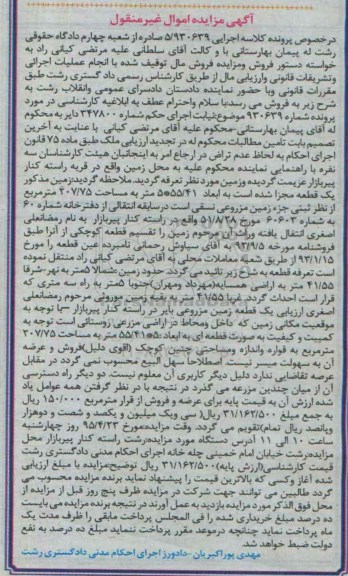 آگهی مزایده اموال غیرمنقول
درخصوص پرونده کلاسه اجرایی ۵/۹۳۰۶۳۹ صادره از شعبه چهارم دادگاه حقوقی
رشت له پیمان بهارستانی با و کالت آقای سلطانی علیه مرتضی کیانی راد به
خواسته دستور فروش ومزایده فروش مال توقیف شده با انجام عملیات اجرائی
وتشریفات قانونی وارزیابی مال از طریق کارشناس رسمی داد گستری رشت طبق
مقررات قانونی وبا حضور نماینده دادستان دادسرای عمومی وانقلاب رشت به
شرح زیر به فروش می رسد:با سلام واحترام عطف به ابلاغیه کارشناسی در مورد
پرونده شماره ۹۳۰۶۳۹ موضوع:نیابت اجرای حکم شماره ۳۴۷۸۰۰ دایر به محکوم
له آقای پیمان بهارستانی-محکوم علیه آقای مرتضی کیانی با عنایت به آخرین
تصمیم بابت تأمین مطالبات محکوم له در تجدید ارزیابی ملک طبق ماده ۷۵ قانون
اجرای احکام به لحاظ عدم تراض در ارجاع امر به اینجانبان هیئت کارشناسان سه
نفره با راهنمایی نماینده محکوم علیه به محل زمین واقع در قریه راسته کنار
پیربازار عزیمت گردیده وزمین مورد نظر تعرفه گردید. ملاحظه گردید:زمین مذکور
یک قطعه مجزا شده است به ابعاد ۴۱/۵۵×۵ متر به مساحت ۲۰۷/۷۵ مترمربع
از نظر ثبتی جزء زمین مزروعی نسقی است درسابقه انتقالی از دفترخانه شماره ۶۰
به شماره ۶۰۶۰۳ مورخ ۵۱/۸/۲۸ واقع در راسته کنار پیربازار به نام رمضانعلی
اصغری انتقال یافته وراثران مرحوم زمین را تقسیم قطعه کوچکی از آنرا طبق
فروشنامه مورخه ۹۲/۹/۵ به آقای سیاوش رحمانی نامبرده عین قطعه را مورخ
۹۳/۱/۱۵ از طریق شعبه معاملات محلی به آقای مرتضی کیانی راد منتقل نموده
است تعرفه قطعه به شرح زیر تائید می گردد. حدود زمین:شمالا ۵متر به نهر-شرقا
۴۱/۵۵ متر به اراضی همسایه(مهرداد ومهران)جنوبا ۵متر به راه سه متری که
قرار است احداث گردد. غربا ۴۱/۵۵ متر به بقیه زمین موروثی مرحوم رمضانعلی
اصغری ارزیابی یک قطعه زمین مزروعی بایر در راسته کنار پیربازار —با توجه به
موقعیت مکانی زمین که داخل ومحاط در اراضی مزرعی زوستائی است توجه به
کمیت و کیفیت به صورت قطعه ای به ابعاد ۵×۴۱/۵۵ متر به مساحت ۲۰۷/۷۵
مترمربع به قواره واندازه ومساحتی چنین کوچک (اقوی دلیل)فروش و عرضه
آن به سهولت میسر نیست. اصطلاحا سهل البیع محسوب نمی گردد در مقابل
عرضه تقاضایی ندارد دلیل دیگر کاربری آن معلوم نیست. دو دیگر راه دسترسی
آن از میان چندین مزرعه می گذرد در نتیجه با در نظر گرفتن همه عوامل یاد
شده ارزش آن به قیمت پایه برای عرضه و فروش از قرار مترمربع ۱۵۰/۰۰۰ ریال
به جمع مبلغ ۳۱/۱۶۲/۵۰۰ ریال( سی ویک میلیون و یکصد و شصت و دوهزار
وپانصد ریال تمام)تقویم می گردد. وقت مزایده:مورخ ۹۵/۴/۲۳ روز چهارشنبه
ساعت ۱۰ الی ۱۱ آدرس دستگاه مورد مزایده:رشت راسته کنار پیربازار محل
مزایده:رشت خیابان امام خمینی چله خانه اجرای احکام مدنی دادگستری رشت
قیمت کارشناسی(ارزش پایه):۳۱/۱۶۲/۵۰۰ ریال توضیح:مزایده با مبلغ ارزیابی
شده آغاز وکسی که بالاترین قیمت را پیشنهاد نماید برنده مزایده محسوب می
گردد طالبین می توانند جهت شرکت در مزایده ظرف پنج روز قبل از مزایده از
محل فوق الذکر مورد مزایده بازدید به عمل آورند در نتیجه برنده مزایده می بایست
ده درصد مبلغ خریداری شده را فی المجلس پرداخت مابقی را ظرف مدت یک
ماه پرداخت نماید چنانچه درموعد مقرر پرداخت ننماید مبلغ ده درصد به نفع
دولت ضبط خواهد شد.
مهدی پوراکبریان-دادورز اجرای احکام مدنی دادگستری رشت